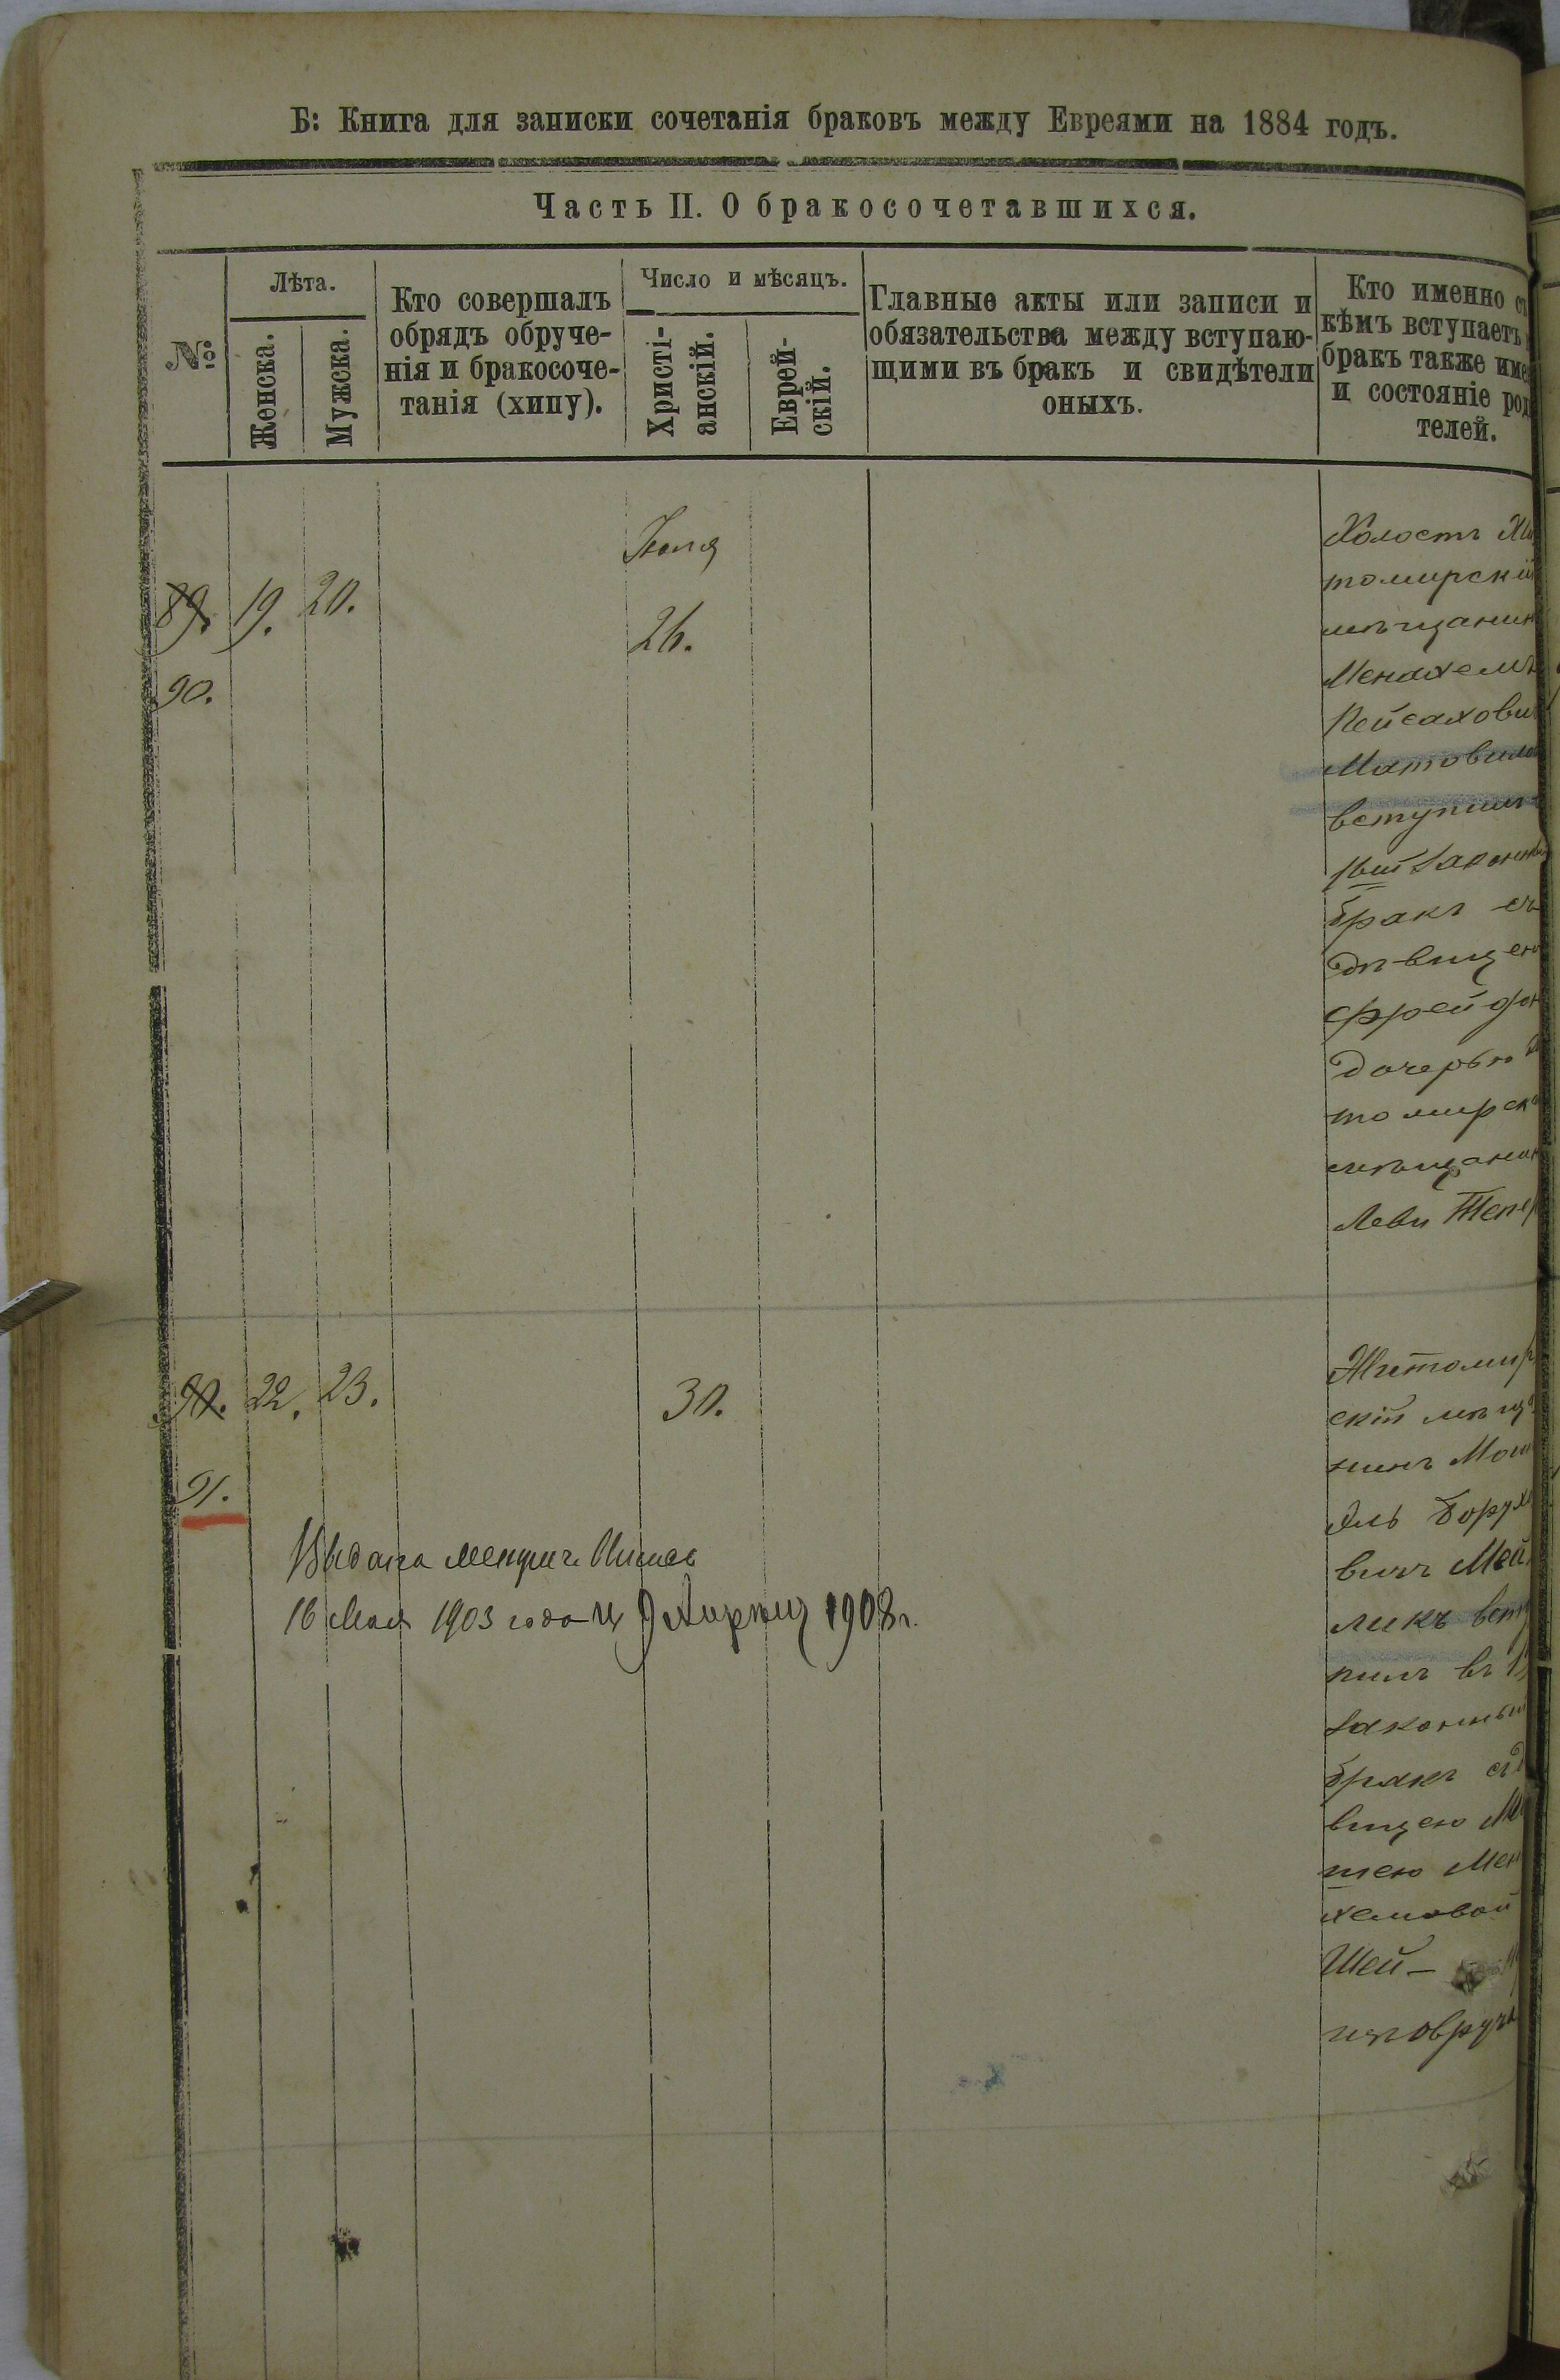 Б: Книга для записки сочетанія браковъ между Евреями на 1884 годъ.
Часть II. О бракосочетавшихся.
№
Лѣта.
Женска.
Мужска.
Кто совершалъ
обрядъ обруче-
нія и бракосоче-
танія (хипу).
Число и мѣсяцъ.
Христі-
анскій.
Еврей-
скій.
Главные акты или записи и
обязательства между вступаю-
щими въ бракъ и свидѣтели
оныхъ.
Кто именно съ
кѣмъ вступаетъ
бракъ также име
и состояніе род
телей.
89. 19. 20.
26.
90.
Холостъ Жи
томирскій
мѣщанин
Менахемъ
Пейсахови
вступилъ
1вый законны
бракъ съ
дѣвицею
Фрейдо
дочерью
томирск
мѣщанин
Леви Тепер
90. 22. 23. 30.
91.
Выдана
16 Мая 1903 года и 9 1908 г.
Житомир
скій мѣщ
нинъ Мош
Эль Борух
вичъ Мей
ликъ вст
пилъ въ 1
законный
бракъ съ д
вицею М
шею Мен
хемовой
Шей-
изъ Овруч